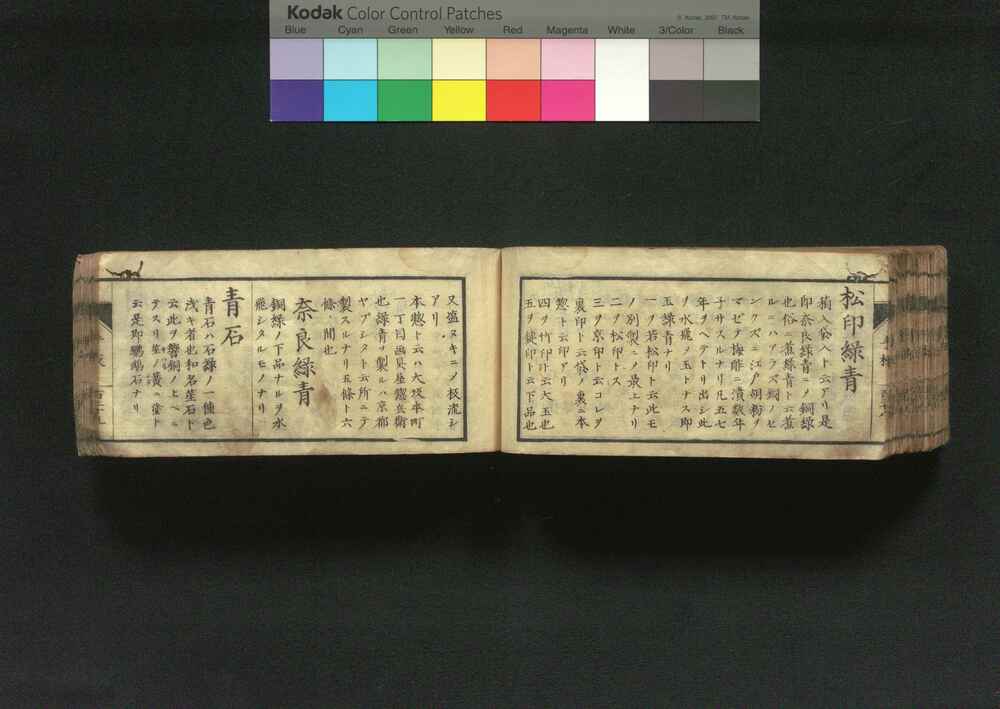 Kodak Color Control Patches
Blue Cyan Green Yellow Red Magenta White 3/Color Black
松印緑青
袋入ト云アリ是
印奈良緑青ニノ銅緑
也俗ニ薫緑青ト云薫
ルニハアラズ銅ノセ
ンクズニ江戸胡粉ヲ
マゼテ梅酢ニ漬数年
子サスルナリ凡五七
年ヲヘテトリ出シ此
ヲ水飛ノ玉トナス即
玉緑青ナリ
一ヲ若松印ト云此モ
ノ別製ニノ最上ナリ
二ヲ松印トス
三ヲ京印ト云コレヲ
裏印ト云袋ノ裏ニ本
惣ト云印アリ
四ヲ竹印ト云大玉也
五ヲ鏡印ト云下品也
又盛ヌキニノ板流シ
アリ
本惣ト云ハ大坂本町
一丁目画具屋惣兵衛
也緑青ヲ製ルハ京都
ヤブシタト云所ニテ
製スルナリ五條ト六
條ノ間也
奈良緑青
銅緑ノ下品ナルヲ水
飛シタルモノナリ
青石
青石ハ石緑ノ一種色
浅キ者也和名笙石ト
云此ヲ響銅ノ上ヘニ
テスリ笙ノ簧ニ塗ト
云是即鸚鵡石ナリ